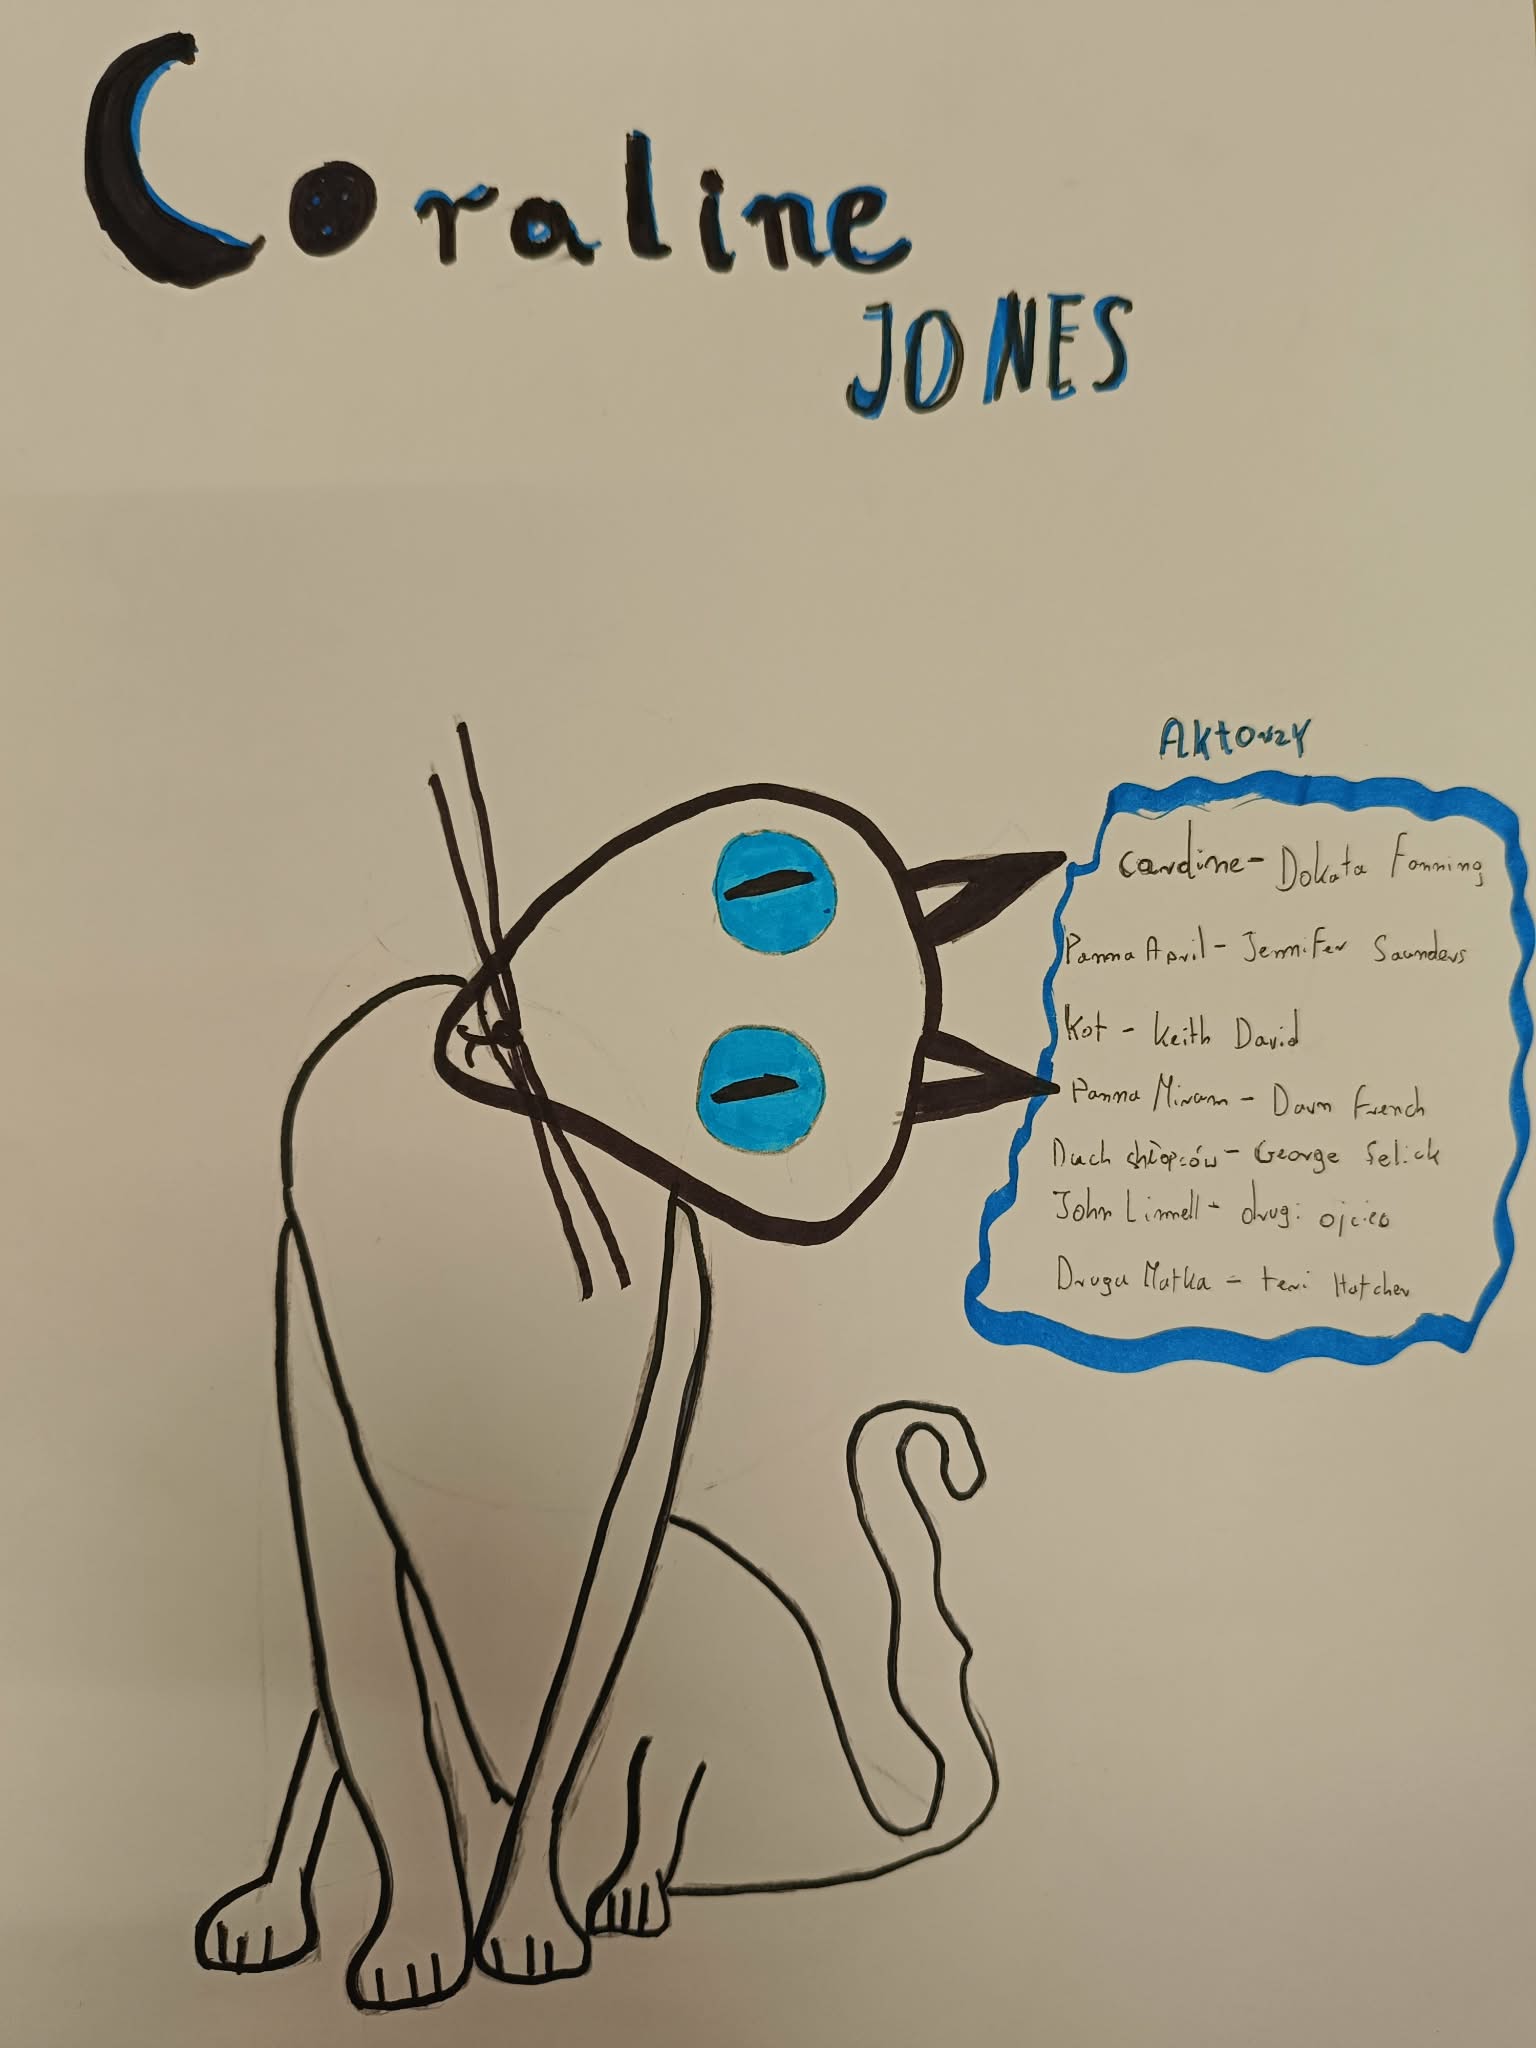 Coraline
JONES
Aktorzy
Caroline - Dokata Fanning
Panna April - Jennifer Saunders
Kot - Keith David
Panna Miriam - Dawn French
Duch chłopców - George Selick
John Linnell - drugi ojciec
Druga Matka - teri Hatcher